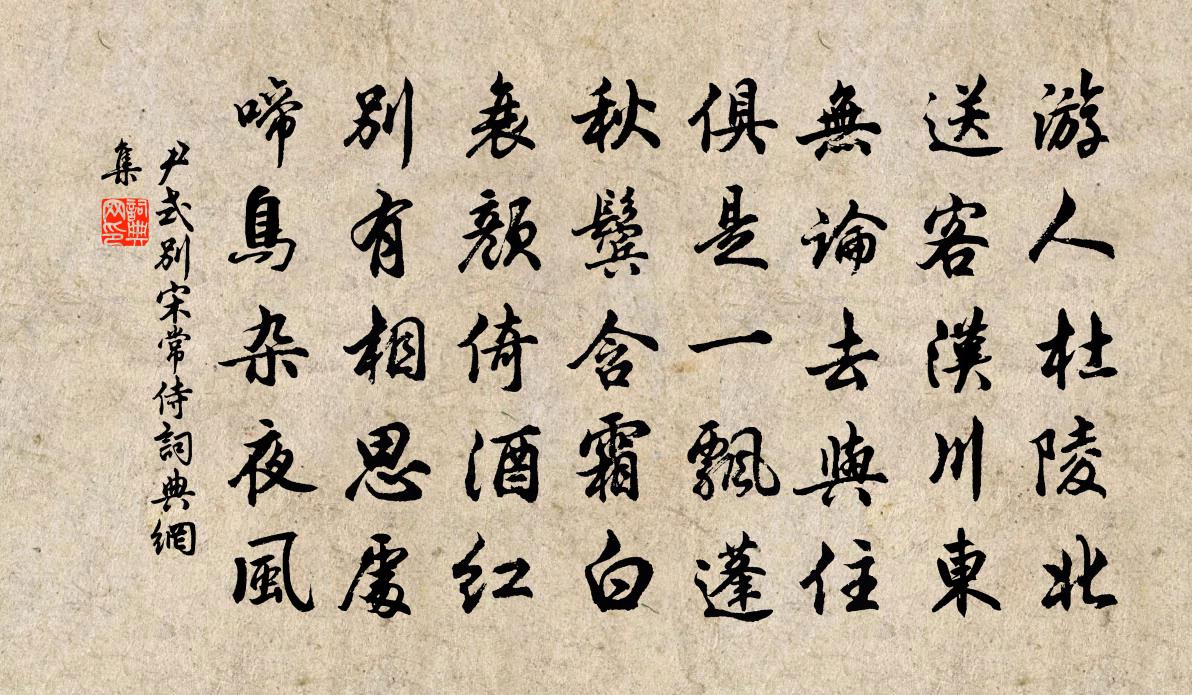 游人杜陵北
送客漢川東
無論去與住
俱是一飄蓬
秋鬢含霜白
衰顏倚酒紅
別有相思處
啼鳥杂夜風
尹式別宋常侍詞典網
集
詞典
网印